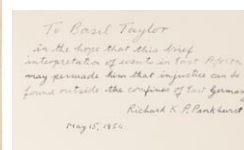 To Basil Taylor
in the hope that this brief
interpretation of events in East Africa
may persuade him that injustice can be
found outside the confines of East Germany
Richard K. P. Pankhurst
May 15, 1954